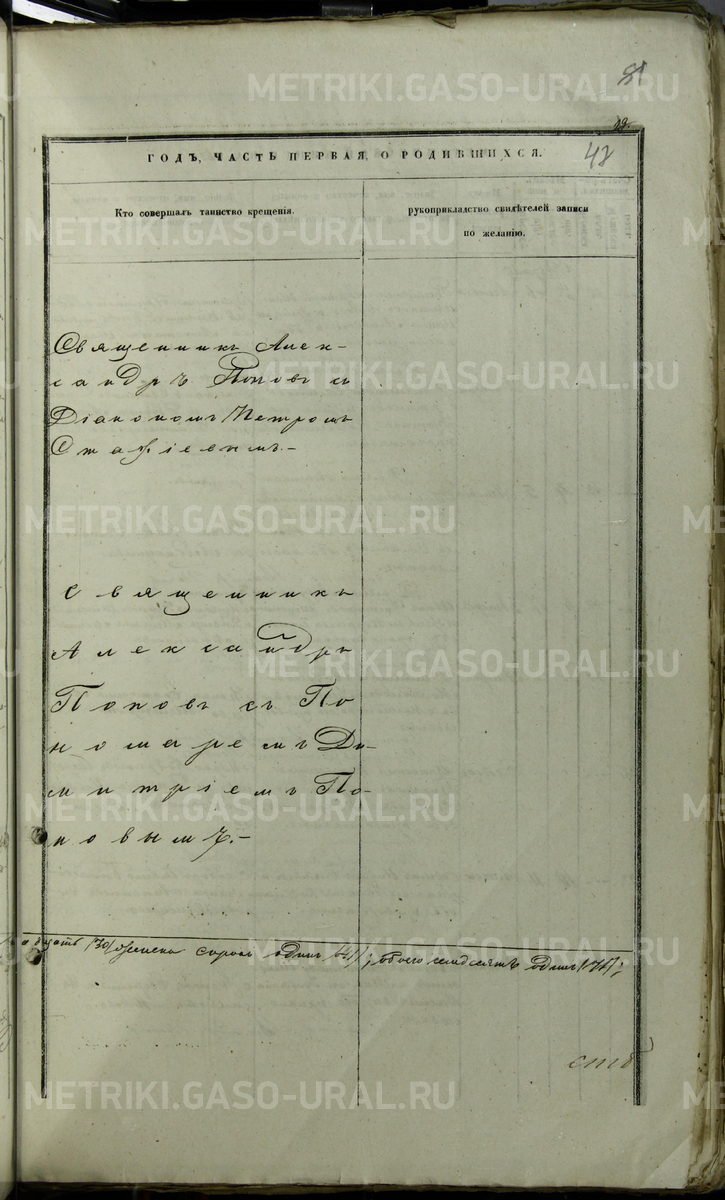 81
42
ГОДЪ, ЧАСТЬ ПЕРВАЯ, О РОДИВШИХСЯ.
Кто совершалъ таинство крещенія.
рукоприкладство свидѣтелей записи
по желанію.
Священникъ Алек-
сандръ Поповъ съ
Діакономъ Петромъ
Священникъ
Александръ
Поповъ съ По
номаремъ Ди-
митріемъ По-
повымъ.-
дцать (30) женска сорокъ одинъ (41); обоего семдесятъ одинъ (71);
METRIKI.GASO-URAL.RU
METRIKI.GASO-URAL.RU
METRIKI.GASO-URAL.RU
METRIKI.GASO-URAL.RU
METRIKI.GASO-URAL.RU
METRIKI.GASO-URAL.RU
METRIKI.GASO-URAL.RU
METRIKI.GASO-URAL.RU